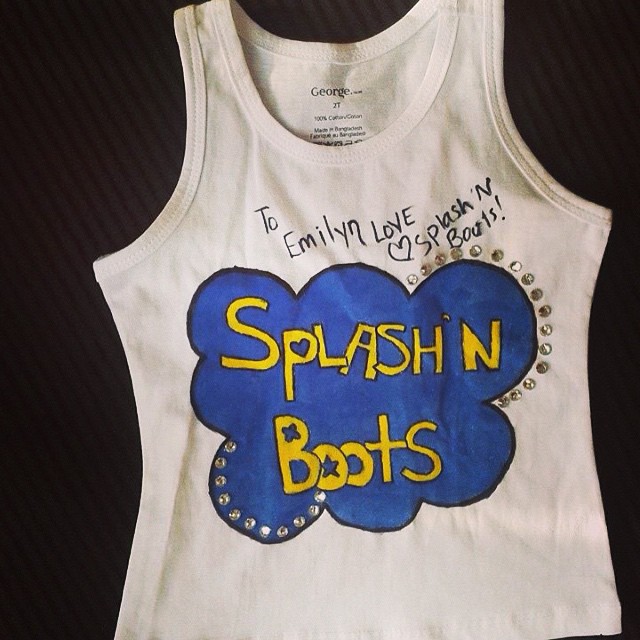 George.
2T
100% Cotton/Coton
Made in Bangladesh
Fabriqué au Bangladesh
To Emilyn LOVE
♡ Splash 'N
Boots!
SPLASH 'N
Boots